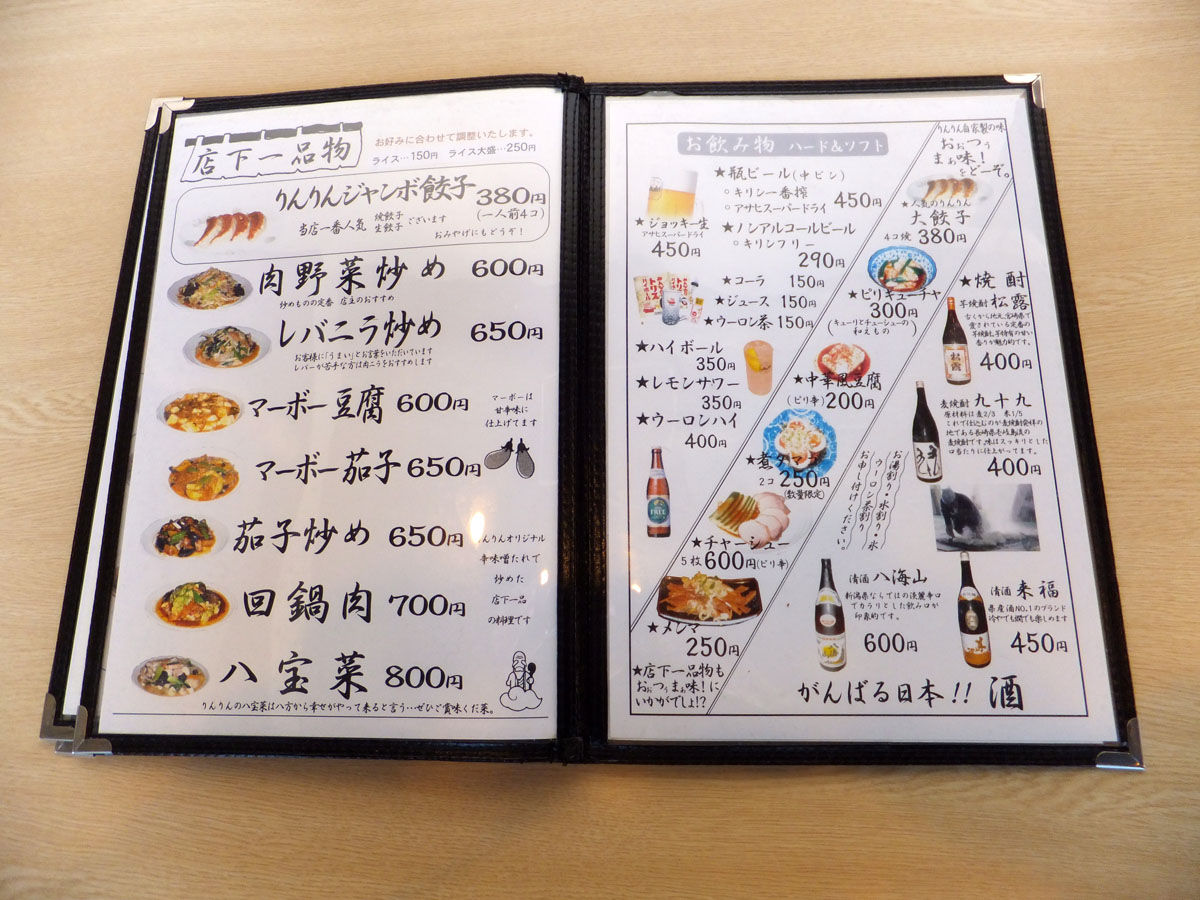 店下一品物
お好みに合わせて調整いたします。
ライス…150円 ライス大盛…250円
りんりんジャンボ餃子 380円
(一人前4コ)
当店一番人気 焼餃子 生餃子 ございます
おみやげにもどうぞ!
肉野菜炒め 600円
炒めものの定番 店主のおすすめ
レバニラ炒め 650円
お客様に「うまい」とお言葉をいただいています
レバーが苦手な方は肉ニラをおすすめします
マーボー豆腐 600円
マーボーは
甘辛味に
仕上げてます
マーボー茄子 650円
茄子炒め 650円
りんりんオリジナル
辛味噌たれで
炒めた
店下一品
の料理です
回鍋肉 700円
八宝菜 800円
りんりんの八宝菜は八方から幸せがやって来ると言う…ぜひご賞味くだ菜。
お飲み物 ハード&ソフト
★ジョッキー生
アサヒスーパードライ
450円
★瓶ビール(中ビン)
○キリン一番搾
○アサヒスーパードライ
450円
★ノンアルコールビール
○キリンフリー
290円
★コーラ 150円
★ジュース 150円
★ウーロン茶 150円
★ハイボール
350円
★レモンサワー
350円
★ウーロンハイ
400円
りんりん自家製の味
おぉつぅ
まぁ味!
をどーぞ。
★人気のりんりん
大餃子
4コ焼 380円
★ピリキューチャ
300円
(キューリとチューシューの
和えもの)
★中華風豆腐
(ピリ辛) 200円
★煮タマゴ
2コ 250円
(数量限定)
★チャーシュー
5枚 600円(ピリ辛)
★メンマ
250円
★店下一品物も
おぉつぅまぁ味!に
いかがでしょ!?
★焼酎
芋焼酎 松露
古くから地元宮崎県で
愛されている定番の
芋焼酎。芋特有の甘い
香りが魅力的です。
400円
麦焼酎 九十九
原材料は麦2/3 米1/3
これで仕込むのが麦焼酎発祥の
地である長崎県壱岐島流の
麦焼酎です。味はスッキリとした
口当たりに仕上がってます。
400円
お湯割り・水割り・氷
ウーロン茶割り
お申し付けください。
清酒 八海山
新潟県ならではの淡麗辛口
でカラリとした飲み口が
印象的です。
600円
清酒 来福
県産酒NO.1のブランド
冷やでも燗でも楽しめます
450円
がんばる日本!! 酒